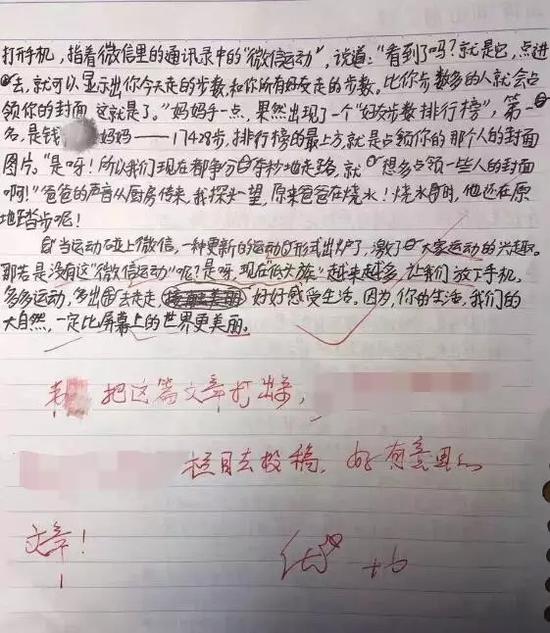 打开手机，指着微信里的通讯录中的“微信运动”，说道：“看到了吗？就是它，点进
去，就可以显示出你今天走的步数和你所有好友走的步数。比你步数多的人就会占
领你的封面，这就是了。”妈妈手一点，果然出现了一个“好友步数排行榜”，第一
名，是钱 妈妈——17428步，排行榜的最上方就是占领你的那个人的封面
图片。“是呀！所以我们现在都争分夺秒地走路，就想多占领一些人的封面
啊！”爸爸的声音从厨房传来，我探头一望，原来爸爸在烧水！烧水同时，他还在原
地踏步呢！
当运动碰上微信，一种更新的运动形式出炉了，激了大家运动的兴趣。
那若是没有这“微信运动”呢？是呀，现在低头族越来越多，让我们放下手机，
多多运动，多出去走走，好好感受生活。因为，你的生活，我们的
大自然，一定比屏幕上的世界更美丽。
把这篇文章打出来，
栏目去投稿，好有意思的
文章！
优 +6